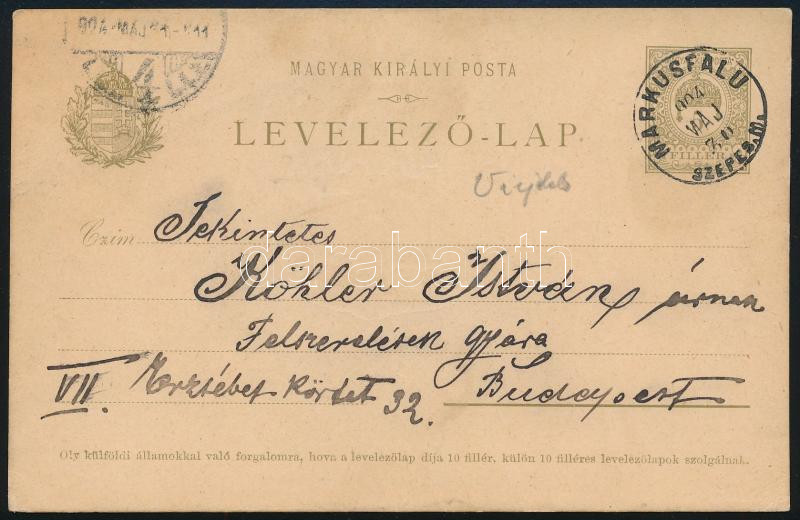 904 MÁJ 31
MAGYAR KIRÁLYI POSTA
LEVELEZŐ-LAP.
MÁRKUSFALU
904
MÁJ
30
SZEPES.M.
FILLER
Czím
Tekintetes
Köhler István úrnak
Felszerelések gyára
VII. Erzsébet körút 32. Budapest
darabanth
Oly külföldi államokkal való forgalomra, hova a levelezőlap díja 10 fillér, külön 10 filléres levelezőlapok szolgálnak.